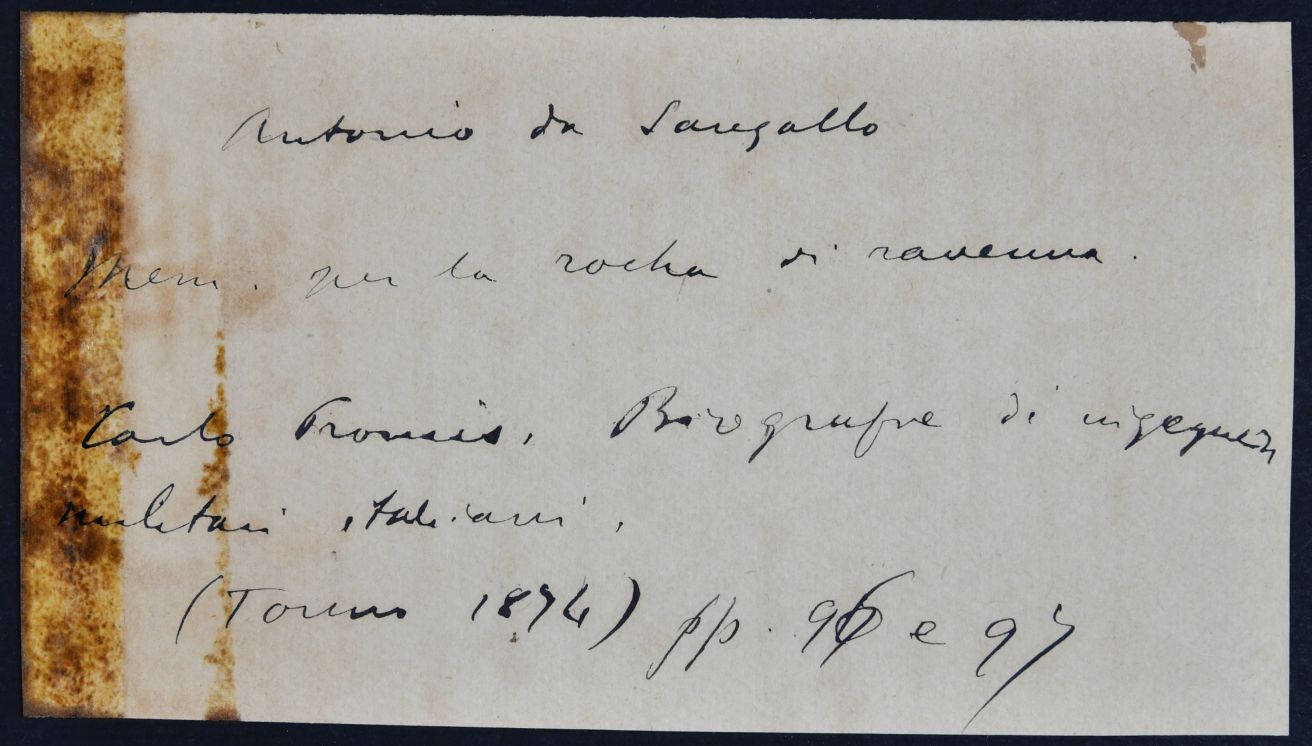 Antonio da Sangallo
Mem. per la rocha di ravenna.
Carlo Promis. Biografie di ingegneri
militari italiani.
(Torino 1874) pp. 96 e 97